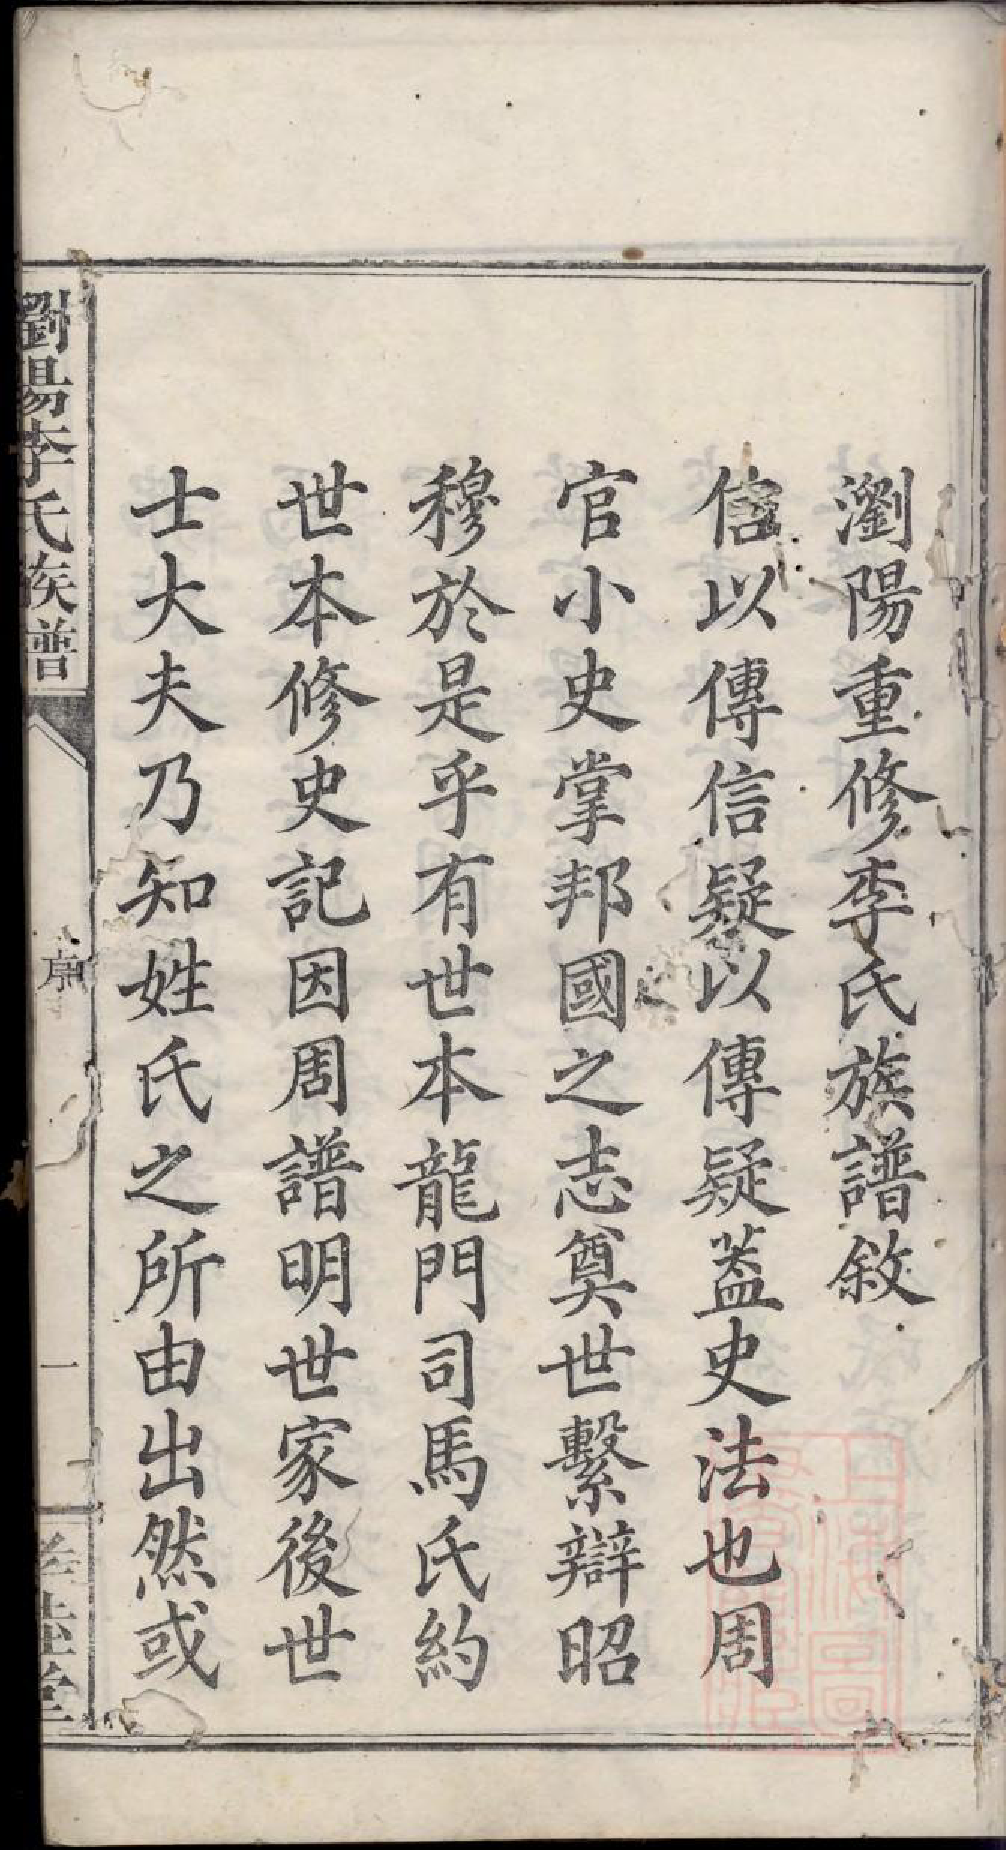 瀏陽重修李氏族譜敘
信以傳信疑以傳疑葢史法也周
官小史掌邦國之志奠世繫辯昭
穆於是乎有世本龍門司馬氏約
世本修史記因周譜明世家後世
士大夫乃知姓氏之所由出然或
瀏陽李氏族譜
一